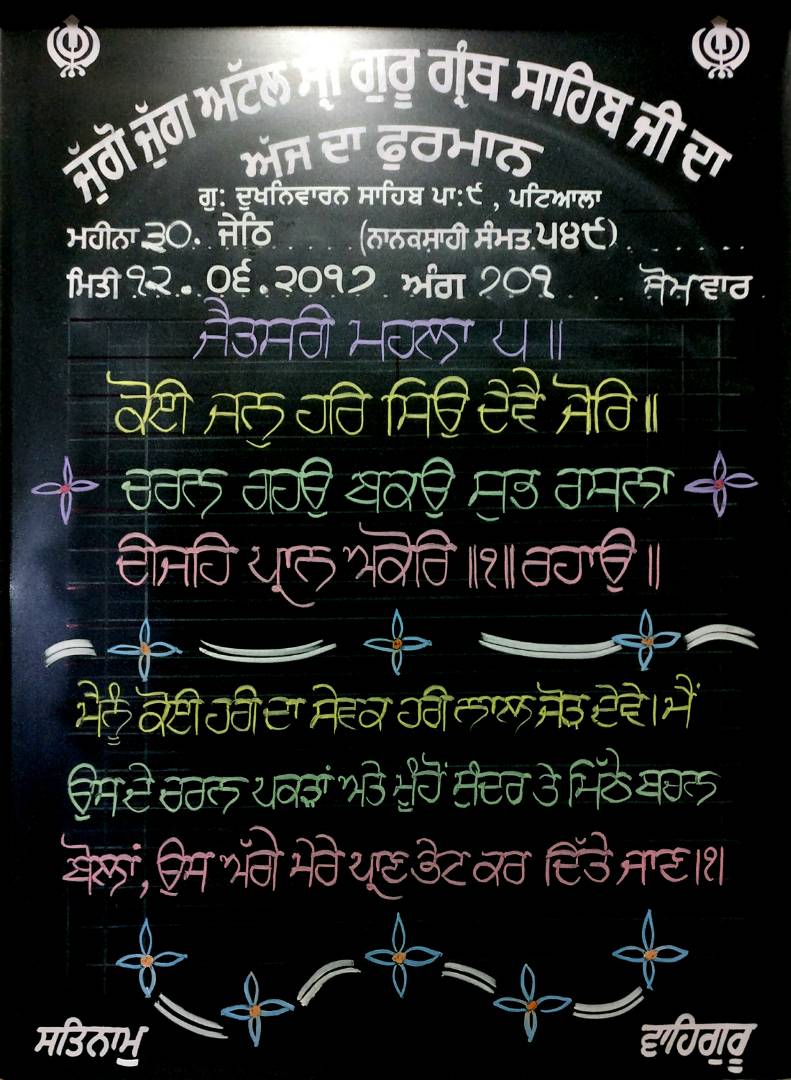 ਜੁੱਗੋ ਜੁੱਗ ਅੱਟਲ ਸ੍ਰੀ ਗੁਰੂ ਗ੍ਰੰਥ ਸਾਹਿਬ ਜੀ ਦਾ
ਅੱਜ ਦਾ ਫੁਰਮਾਨ
ਗੁ: ਦੁਖਨਿਵਾਰਨ ਸਾਹਿਬ ਪਾ:੯ , ਪਟਿਆਲਾ
ਮਹੀਨਾ ੩੦. ਜੇਠਿ (ਨਾਨਕਸਾਹੀ ਸੰਮਤ ੫੪੯)
ਮਿਤੀ ੧੨. ੦੬. ੨੦੧੭ ਅੰਗ ੭੦੧ ਸੋਮਵਾਰ
ਜੈਤਸਰੀ ਮਹਲਾ ੫ ॥
ਕੋਈ ਜਨੁ ਹਰਿ ਸਿਉ ਦੇਵੈ ਜੋਰਿ ॥
ਚਰਨ ਗਹਉ ਬਕਉ ਸੁਭ ਰਸਨਾ
ਦੀਜਹਿ ਪ੍ਰਾਨ ਅਕੋਰਿ ॥੧॥ ਰਹਾਉ ॥
ਮੈਨੂੰ ਕੋਈ ਹਰੀ ਦਾ ਸੇਵਕ ਹਰੀ ਨਾਲ ਜੋੜ ਦੇਵੇ। ਮੈਂ
ਉਸ ਦੇ ਚਰਨ ਪਕੜਾਂ ਅਤੇ ਮੂੰਹੋਂ ਸੁੰਦਰ ਤੇ ਮਿੱਠੇ ਬਚਨ
ਬੋਲਾਂ, ਉਸ ਅੱਗੇ ਮੇਰੇ ਪ੍ਰਾਣ ਭੇਟ ਕਰ ਦਿੱਤੇ ਜਾਣ।੧।
ਸਤਿਨਾਮੁ ਵਾਹਿਗੁਰੂ